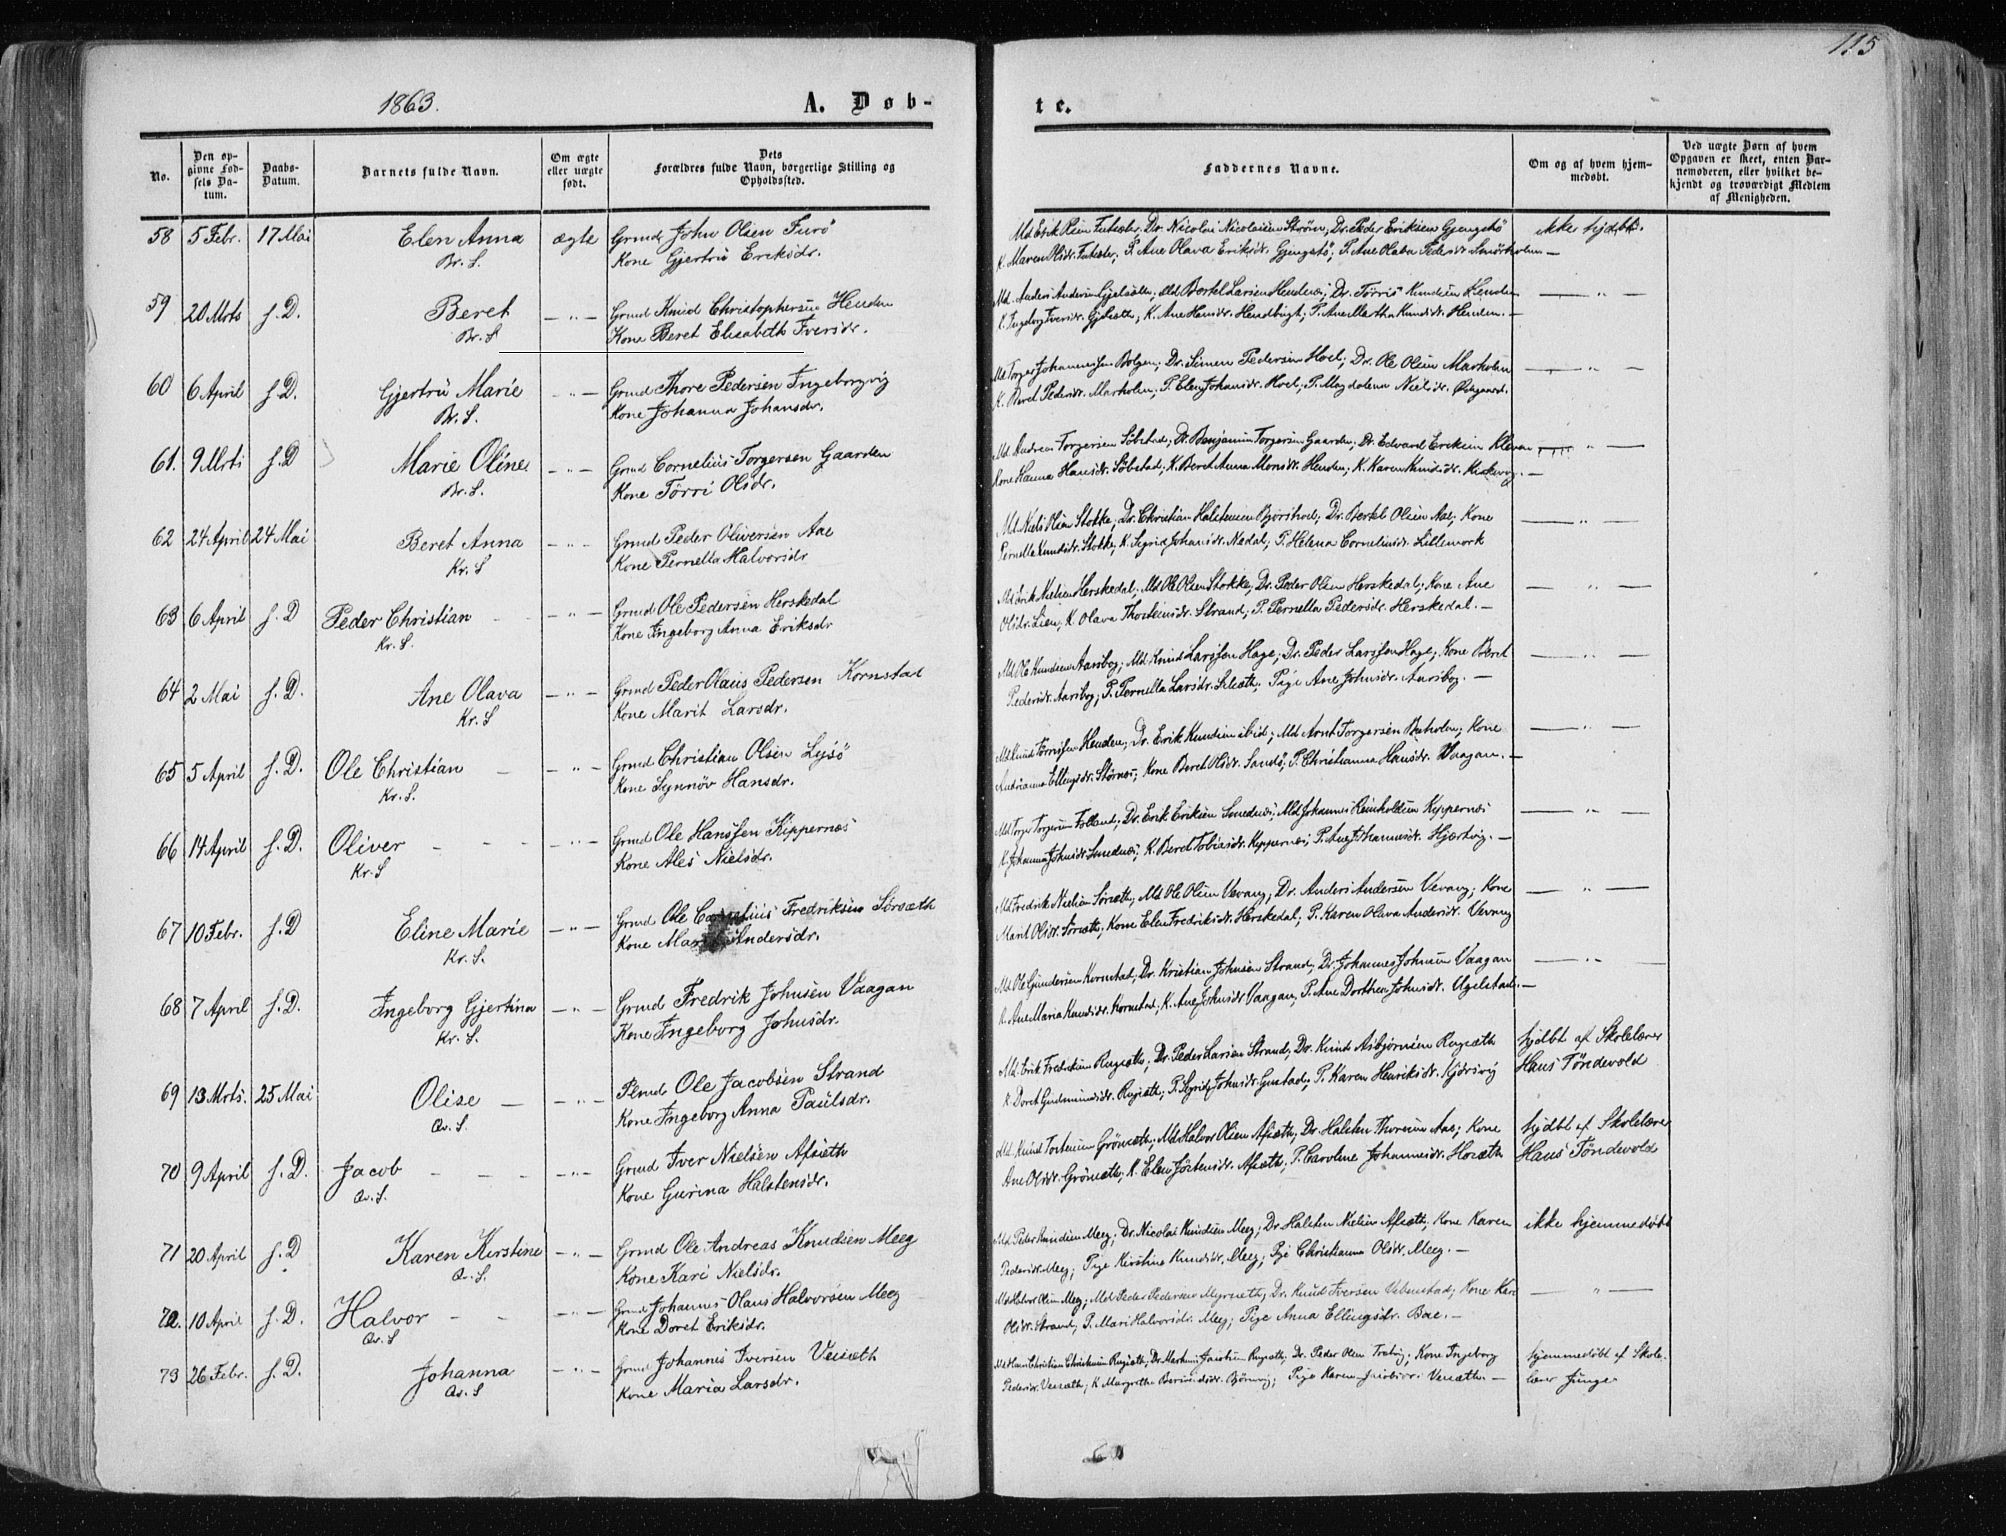 1863.
A. Døb-
te.
115
No.
Den op-
givne Fød-
sels Da-
tum.
Daabs-
Datum.
Barnets fulde Navn.
Om ægte
eller uægte
født.
Dets
Forældres fulde Navn, borgerlige Stilling og
Opholdssted.
Faddernes Navne.
Om og af hvem hjem-
medøbt.
Ved uægte Børn af hvem
Opgaven er skeet, enten Bar-
nemoderen, eller hvilket be-
kjendt og troværdigt Medlem
af Menigheden.
58 5 Febr. 17 Mai Elen Anna ægte Grmd John Olsen Furö
Br. S. Kone Gjertrü Eriksdr.
Dr. Nicolai Nicolaisen Strøm, Dr. Peder Eriksen Gjengstö ikke hjdbt.
K. Maren Olsdr. P. Ane Olava Eriksdr. Gjengstö, P. Ane Olava Pedersdr.
59 20 Mrts s. D. Beret — " — Grmd Knud Christophersen Henden
Br. S Kone Beret Elisabeth Iversdr.
Md. Anders Andersen Md Bertel Larsen Dr. Tørris Knudsen Henden — " —
K. Ingeborg Iversdr. K. Ane Hansdr. Hendbugt; P. Ane Martha Knudsdr. Henden. —
60 6 April s. D. Gjertrü Marie — " — Grmd Thore Pedersen Ingeborgvig
Br. S. Kone Johanna Johansdr.
Md Torger Johannessen Bolgen; Dr. Simen Pedersen Hoel; Dr. Ole Olsen Marholm — " —
K. Beret Pedersdr. Marholm; P. Elen Johansdr. Hoel; P. Magdalena Nielsdr.
61. 9 Mrts s. D Marie Oline — " — Grmd Cornelius Torgersen Gaarden
Br. S. Kone Törri Olsdr.
Md Andreas Torgersen Søbstad; Dr. Benjamin Torgersen Gaarden; Dr. Edvard Eriksen — " —
Kone Hanna Hansdr. Søbstad; K. Beret Anna Monsdr. Henden; K. Karen Knudsdr.
62 24 April 24 Mai Beret Anna — " — Grmd Peder Oliversen Aae
Kr. S Kone Pernella Halvorsdr
Md Niels Olsen Stokke; Dr. Christian Halstensen Dr. Bertel Olsen Aae; Kone — " —
Pernella Knudsdr. Stokke; K. Sigrid Johansdr. Nedal; P. Helena Corneliusdr. Lillemork
63 6 April s. D Peder Christian — " — Grmd Ole Pedersen Herskedal
Kr. S. Kone Ingeborg Anna Eriksdr
Md Erik Nielsen Herskedal, Md Ole Olsen Stokke, Dr. Peder Olsen Herskedal; Kone Ane — " —
Olsdr. Lien; K. Olava Thostensdr. Strand; P. Pernella Pedersdr. Herskedal. —
64 2 Mai s. D. Ane Olava — " — Grmd Peder Olaus Pedersen Kornstad
Kr. S Kone Marit Larsdr.
Md Ole Knudsen Aarsbog; Md Knud Larssen Hage; Dr. Peder Larssen Hage; Kone Beret — " —
Pedersdr. Aarsbog; P. Pernella Larsdr. Pige Ane Johnsdr. Aarsbog. —
65 5 April s. D. Ole Christian — — " — Grmd Christian Olsen Lysö
Kr. S. Kone Synnöv Hansdr.
Md Knud Henden; Dr. Erik Knudsen ibid; Md Arnt Torgersen Kone — " —
Andrianna Ellingsdr. Kone Beret Olsdr. Sandö; P. Christianna Hansdr. Vaagan. —
66 14 April s. D. Oliver — — — — " — Grmd Ole Hanssen Kippernæs
Kr. S Kone Ales Nielsdr.
Md Torger Torgersen Dr. Erik Eriksen Md Johannes Reinholdsen Kippernæs — " —
K Johanna Johnsdr. K. Beret Tobiasdr. Kippernæs; P. Ane Johannesdr. Hjertvig. —
67 10 Febr. s. D Eline Marie — " — Grmd Ole Cornelius Fredriksen Sörsæth
Kr. S. Kone Marit Andersdr.
Md Fredrik Nielsen Sörsæth; Md Ole Olsen Vevang; Dr. Anders Andersen Vevang; Kone — " —
Marit Olsdr. Sörsæth; Kone Elen Fredriksdr. Herskedal; P. Karen Olava Andersdr. Vevang
68 7 April s. D. Ingeborg Gjertina — " — Grmd Fredrik Johnsen Vaagan
Kr. S. Kone Ingeborg Johnsdr.
Md Ole Gundersen Kornstad; Dr. Kristian Johnsen Strand; Dr. Johannes Johnsen Vaagan — " —
K. Ane Maria Knudsdr. Kornstad; K. Ane Johnsdr. Vaagan; P. Ane Dorthea Johnsdr. Ugelstad. —
69 13 Mrts. 25 Mai Olise — — " — Plmd Ole Jacobsen Strand
Qv. S. Kone Ingeborg Anna Paulsdr.
Md. Erik Fredriksen Rugsæth; Dr. Peder Larsen Strand; Dr. Knud Asbjørnsen Rugsæth hjdbt af Skolelærer
K Doret Gudmundsdr. Rugsæth; P. Sigrid Johnsdr. Gustad; P. Karen Henriksdr. Hans Töndevold
70 9 April s. D. Jacob — — — — " — Grmd Iver Nielsen Afsæth
Qv. S. Kone Gurina Halstensdr.
Md Knud Tostensen Grönsæth; Md Halvor Olsen Afsæth; Dr. Halsten Thoresen Aae; Kone hjdbt af Skolelærer
Ane Olsdr. Grönsæth; K. Elen Jostensdr. Afsæth; P. Caroline Johannesdr. Horsæth Hans Töndevold
71 20 April s. D Karen Kirstine — " — Grmd Ole Andreas Knudsen Meeg
Qv. S. Kone Kari Nielsdr.
Md. Peder Knudsen Meeg; Dr. Nicolai Knudsen Meeg; Dr. Halsten Nielsen Afsæth; Kone Karen ikke hjemmedøbt
Pedersdr. Meeg; Pige Kirstine Knudsdr. Meeg; Pige Christianna Olsdr. Meeg. —
72. 10 April s. D. Halvor — — — " — Grmd Johannes Olaus Halvorsen Meeg
Qv. S Kone Doret Eriksdr.
Md Halvor Olsen Meeg; Md Peder Pedersen Dr. Knud Iversen Kone Kari — " —
Olsdr. Strand; P. Mari Halvorsdr. Meeg; Pige Anna Ellingsdr. Boe. —
73 26 Febr. s. D. Johanna — " — Grmd Johannes Iversen Vensæth
Qv. S Kone Maria Larsdr.
Md Hans Christian Christensen Rugsæth; Dr. Markus Jacobsen Rugsæth; Dr. Peder Olsen Kone Ingeborg hjemmedøbt af Skole-
Pedersdr. Vensæth; K Margrethe Pige Karen Jacobsdr. Vensæth. — lærer Junge